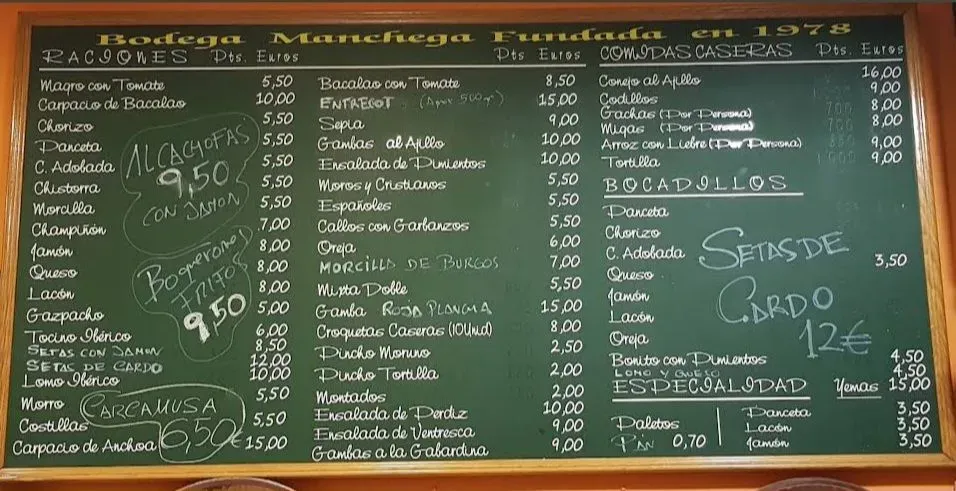 Bodega Manchega Fundada en 1978
RACIONES Pts. Euros
Magro con Tomate 5,50
Carpacio de Bacalao 10,00
Chorizo 5,50
Panceta 5,50
C. Adobada 5,50
Chistorra 5,50
Morcilla 5,50
Champiñón 7,00
Jamón 8,00
Queso 8,00
Lacón 8,00
Gazpacho 5,00
Tocino Ibérico 6,00
SETAS CON JAMON 8,50
SETAS DE CARDO 12,00
Lomo Ibérico 10,00
Morro 5,50
Costillas 5,50
Carpacio de Anchoa €15,00
ALCACHOFAS
9,50
CON JAMON
BOQUERONES
FRITO
9,50
CARCAMUSA
6,50
Pts Euros
Bacalao con Tomate 8,50
ENTRECOT (Apor 500gr) 15,00
Sepia 9,00
Gambas al Ajillo 10,00
Ensalada de Pimientos 10,00
Moros y Cristianos 5,50
Españoles 5,50
Callos con Garbanzos 5,50
Oreja 6,00
MORCILLA DE BURGOS 7,00
Mixta Doble 5,50
Gamba ROJA PLANCHA 15,00
Croquetas Caseras (10Unid) 8,00
Pincho Moruno 2,50
Pincho Tortilla 2,00
Montados 2,00
Ensalada de Perdiz 10,00
Ensalada de Ventresca 9,00
Gambas a la Gabardina 9,00
COMIDAS CASERAS Pts. Euros
Conejo al Ajillo 16,00
Codillos 9,00
Gachas (Por Persona) 8,00
Migas (Por Persona) 8,00
Arroz con Liebre (Por Persona) 9,00
Tortilla 9,00
BOCADILLOS
Panceta
Chorizo
C. Adobada
Queso 3,50
Jamón
Lacón
Oreja
Bonito con Pimientos 4,50
LOMO Y QUESO 4,50
SETAS DE
CARDO
12€
ESPECIALIDAD Yemas 15,00
Paletos
PAN 0,70
Panceta 3,50
Lacón 3,50
Jamón 3,50